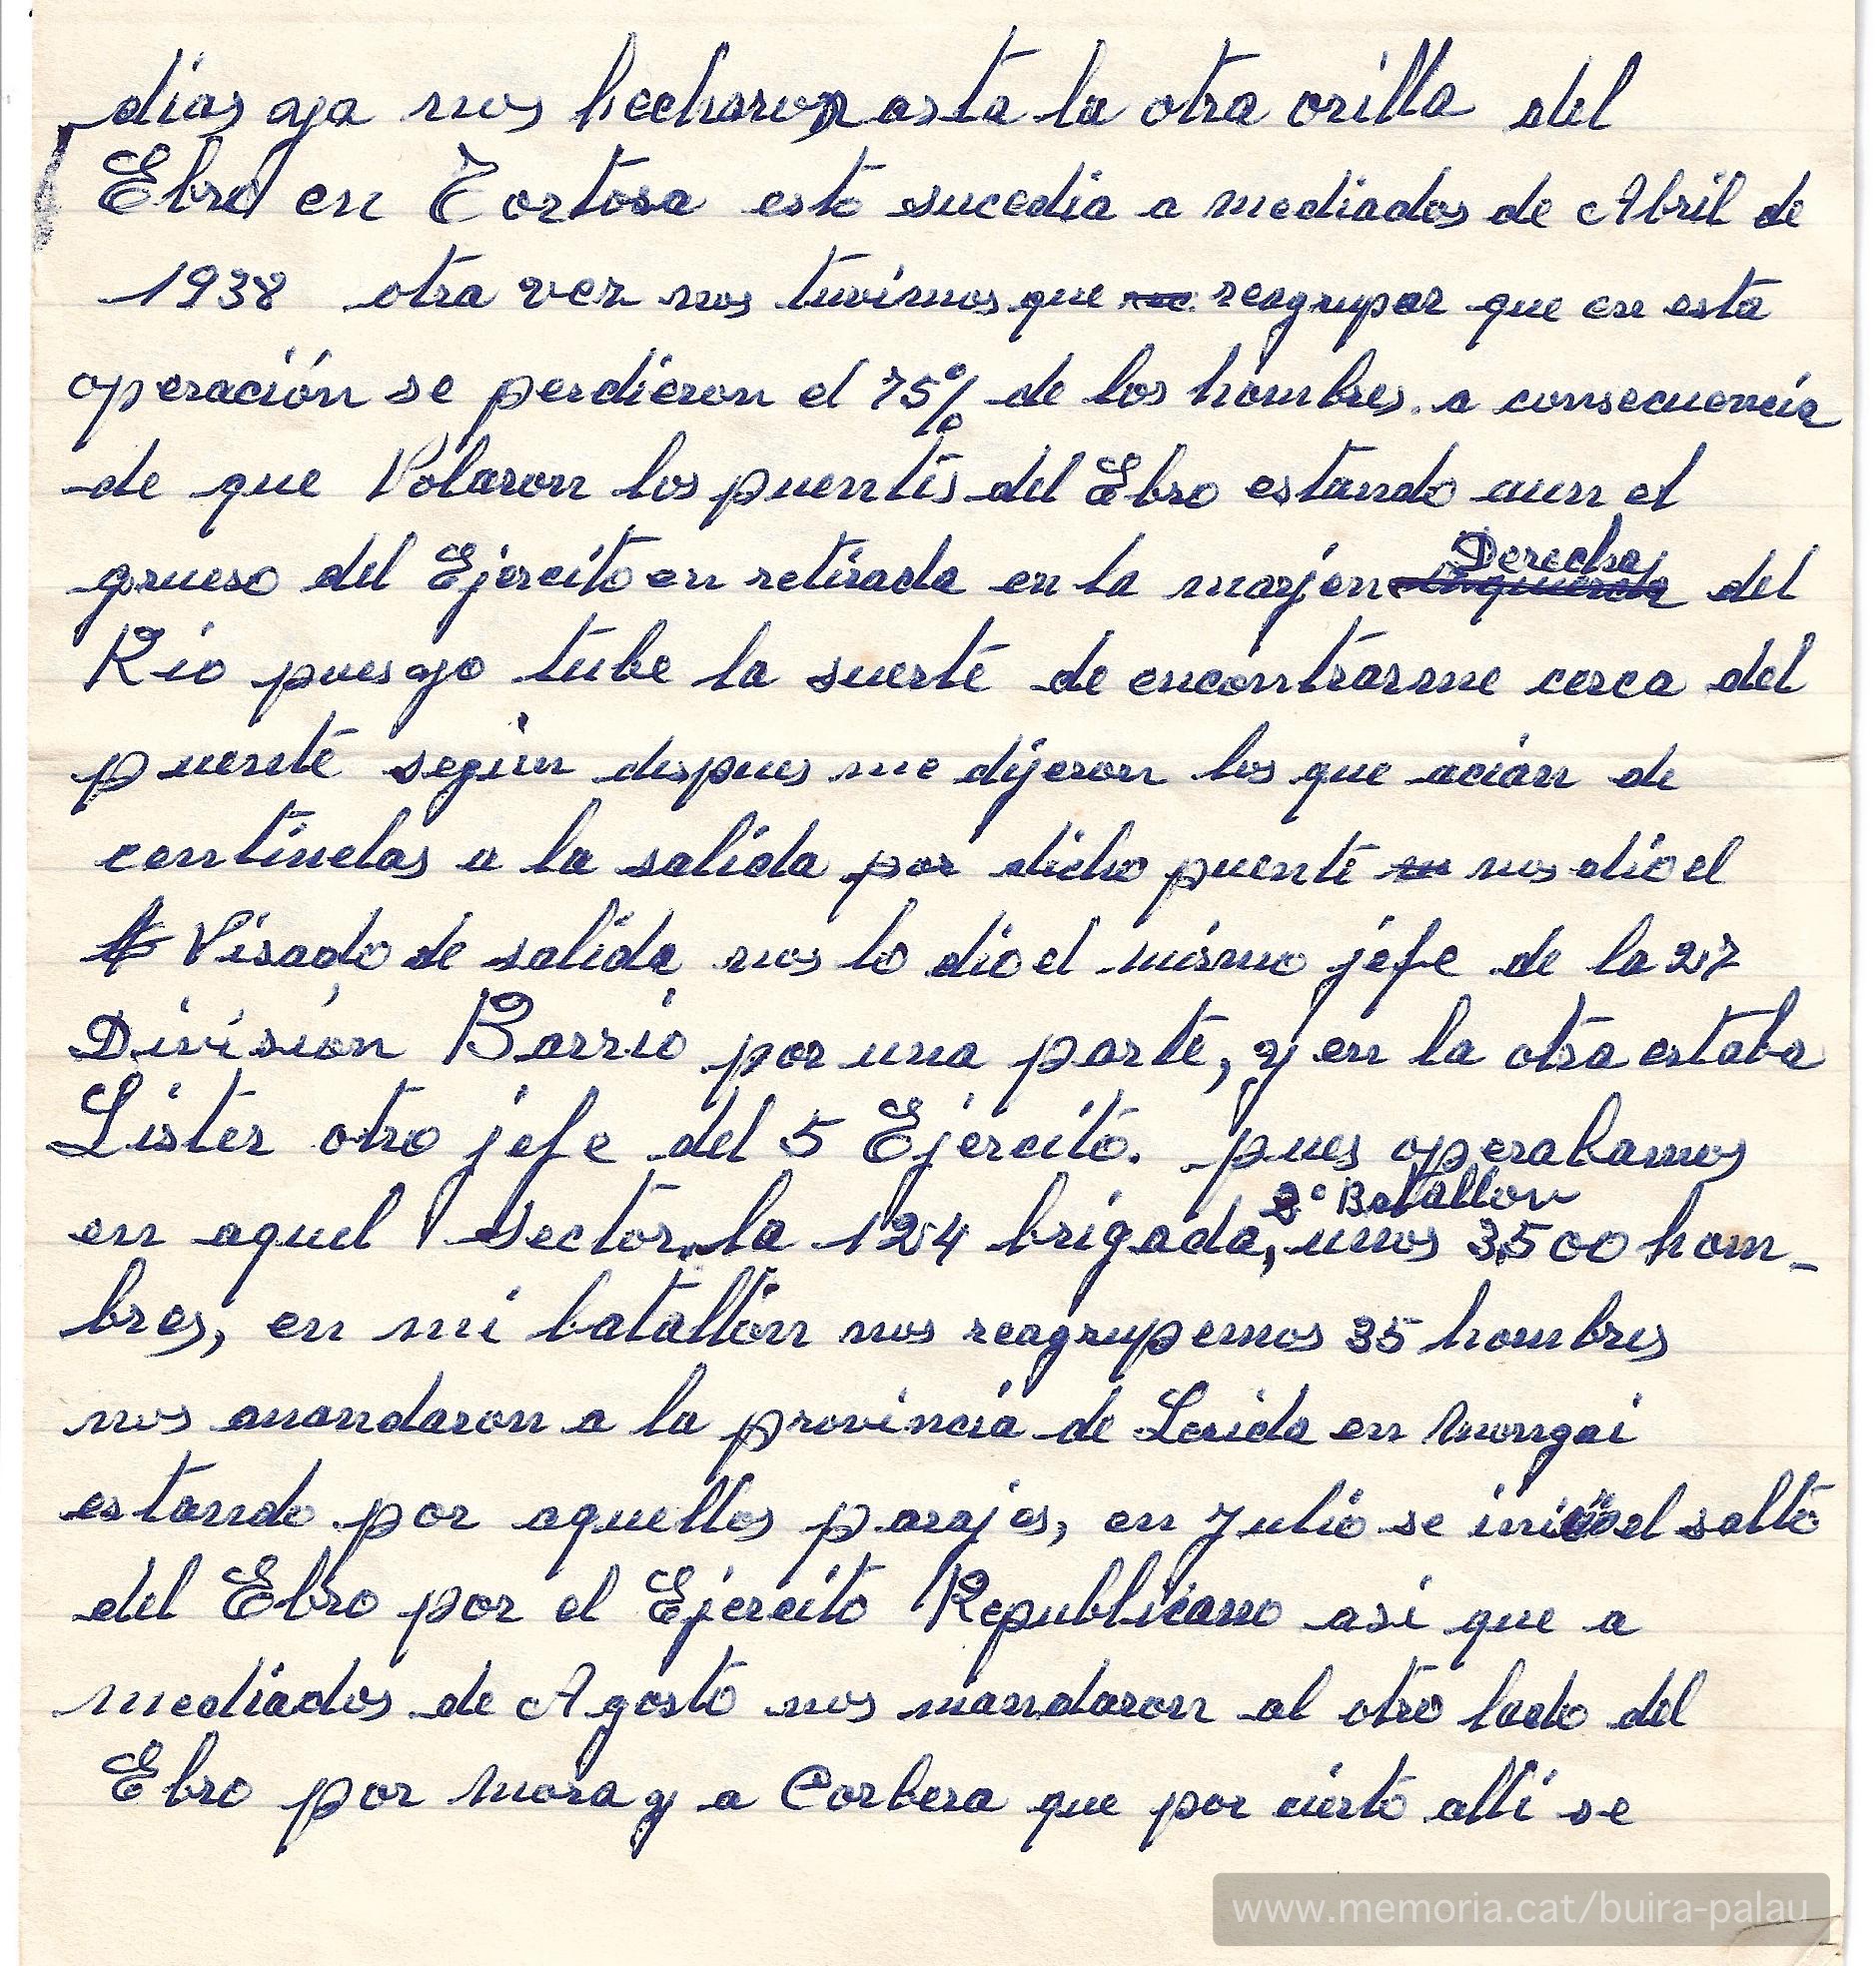 dias ya nos hecharon asta la otra orilla del
Ebro en Tortosa esto sucedia a mediados de Abril de
1938 otra vez nos tuvimos que reagrupar que en esta
operación se perdieron el 75% de los hombres. a consecuencia
de que Volaron los puentes del Ebro estando aun el
grueso del Ejercito en retirada en la marjen Derecha del
Rio pues yo tube la suerte de encontrarme cerca del
puente según despues me dijeron los que acian de
centinelas a la salida por dicho puente nos dio el
Visado de salida nos lo dio el mismo jefe de la 27
División Barrio por una parte, y en la otra estaba
Lister otro jefe del 5 Ejercito. pues operabamos
en aquel Sector, la 124 brigada, 2º Batallon unos 3,500 hom-
bres, en mi batallón nos reagrupemos 35 hombres
nos mandaron a la provincia de Lerida en Mongai
estando por aquellos parajes, en Julio se inició el salto
del Ebro por el Ejército Republicano asi que a
mediados de Agosto nos mandaron al otro lado del
Ebro por Mora y a Corbera que por cierto alli se
www.memoria.cat/buira-palau